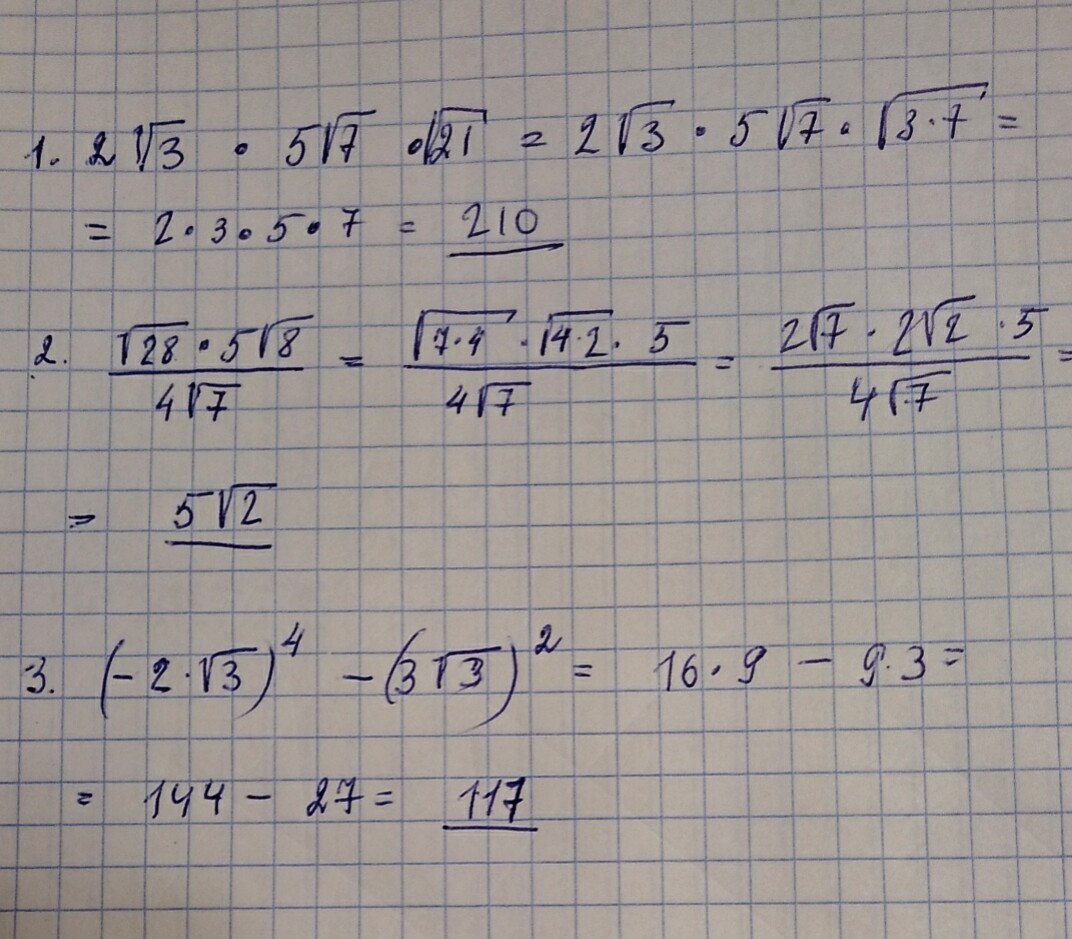 1. 2√3 • 5√7 • √21 = 2√3 • 5√7 • √3·7 =
= 2 • 3 • 5 • 7 = 210
2. √28 • 5√8 / 4√7 = √7·4 · √4·2 · 5 / 4√7 = 2√7 · 2√2 · 5 / 4√7 =
= 5√2
3. (-2·√3)⁴ - (3√3)² = 16 · 9 - 9·3 =
= 144 - 27 = 117